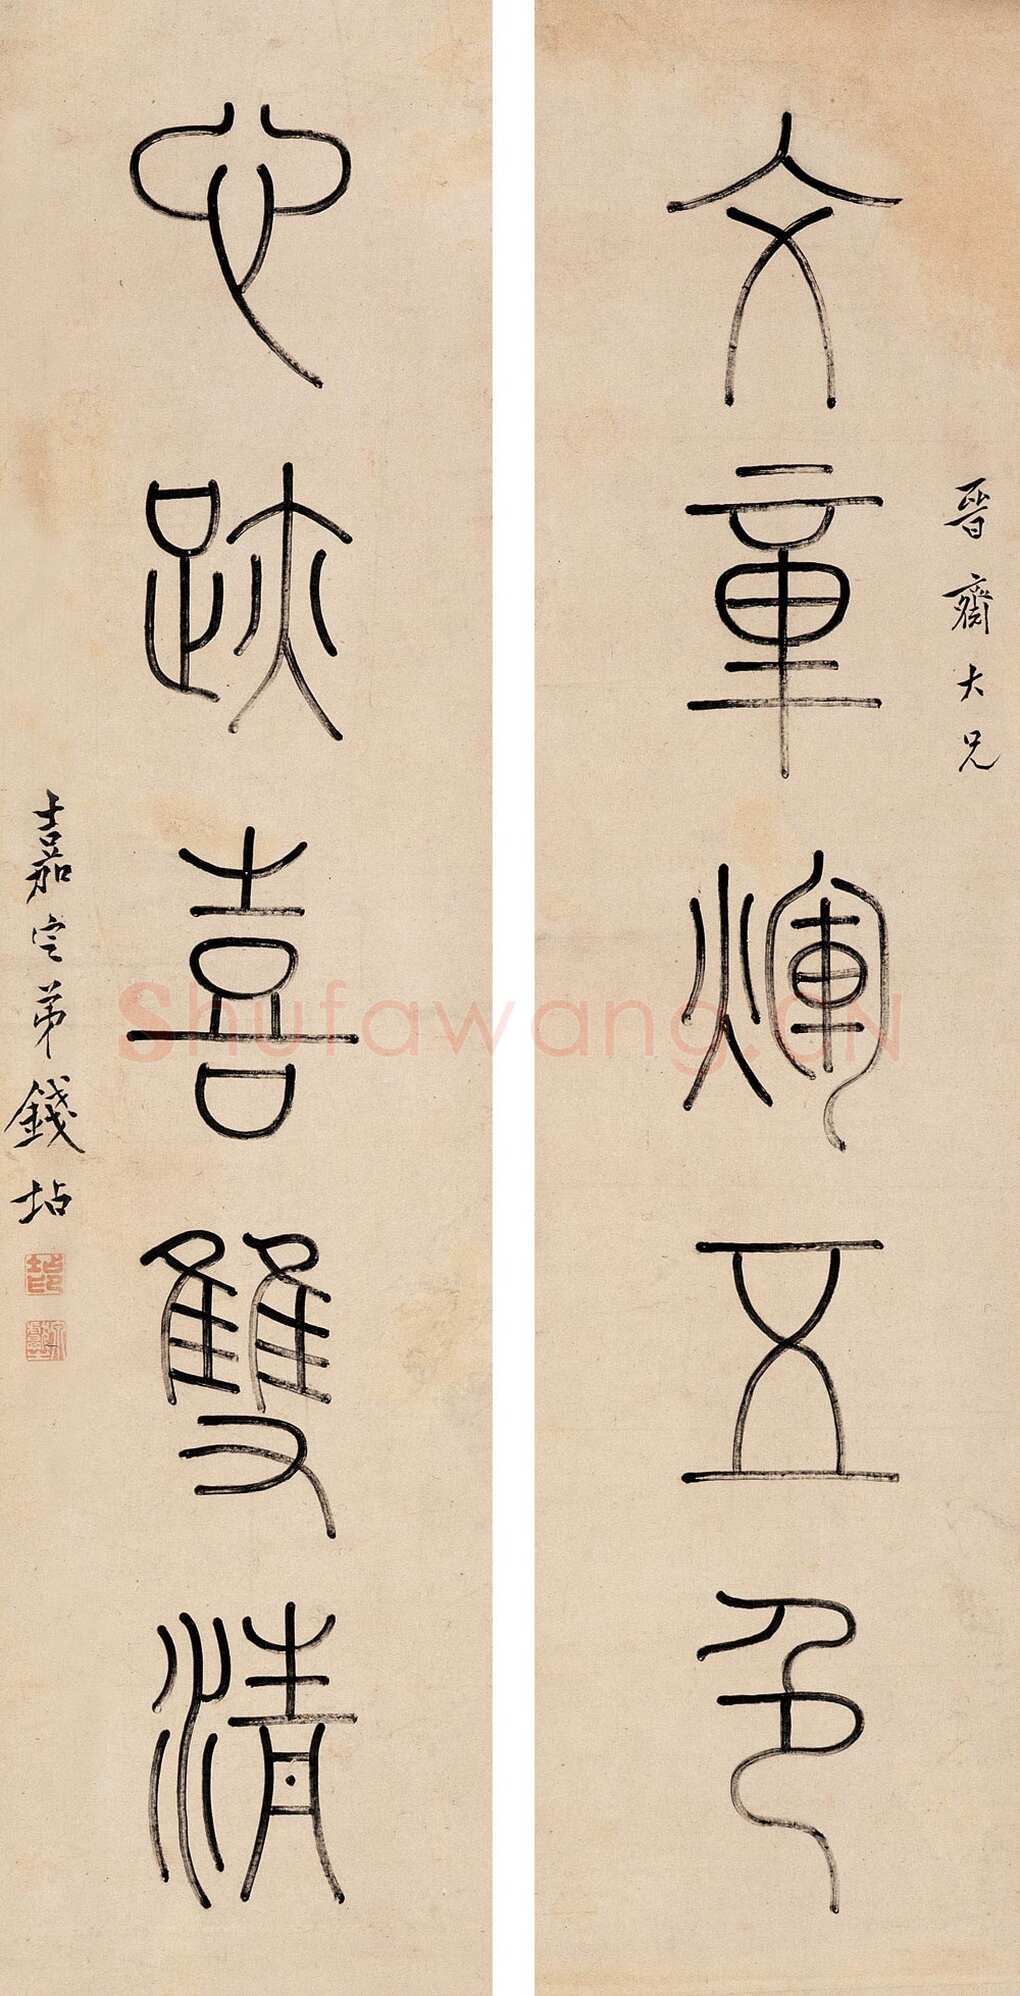 晉齋大兄
文章煇五色
心跡喜雙清
嘉定弟錢坫
Shufawang.CN